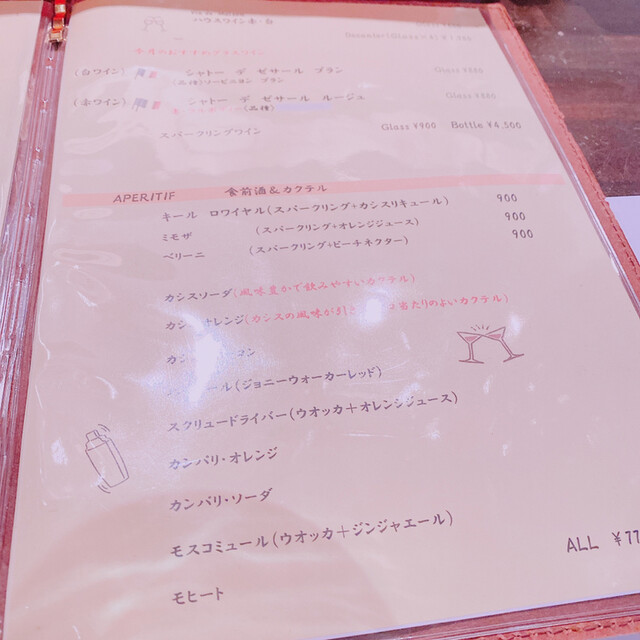 ハウスワイン赤・白
今月のおすすめグラスワイン
(白ワイン) シャトー デ ゼサール ブラン Glass
(品種)ソービニヨン ブラン
(赤ワイン) シャトー デ ゼサール ルージュ Glass
(品種)
スパークリングワイン Glass ¥900 Bottle ¥4,500
APERITIF 食前酒&カクテル
キール ロワイヤル(スパークリング+カシスリキュール) 900
ミモザ (スパークリング+オレンジジュース) 900
ベリーニ (スパークリング+ピーチネクター) 900
カシスソーダ(風味豊かで飲みやすいカクテル)
カシ オレンジ(カシスの風味が引き 当たりのよいカクテル)
カシ
ール(ジョニーウォーカーレッド)
スクリュードライバー(ウオッカ+オレンジジュース)
カンパリ・オレンジ
カンパリ・ソーダ
モスコミュール(ウオッカ+ジンジャエール)
ALL ¥77
モヒート